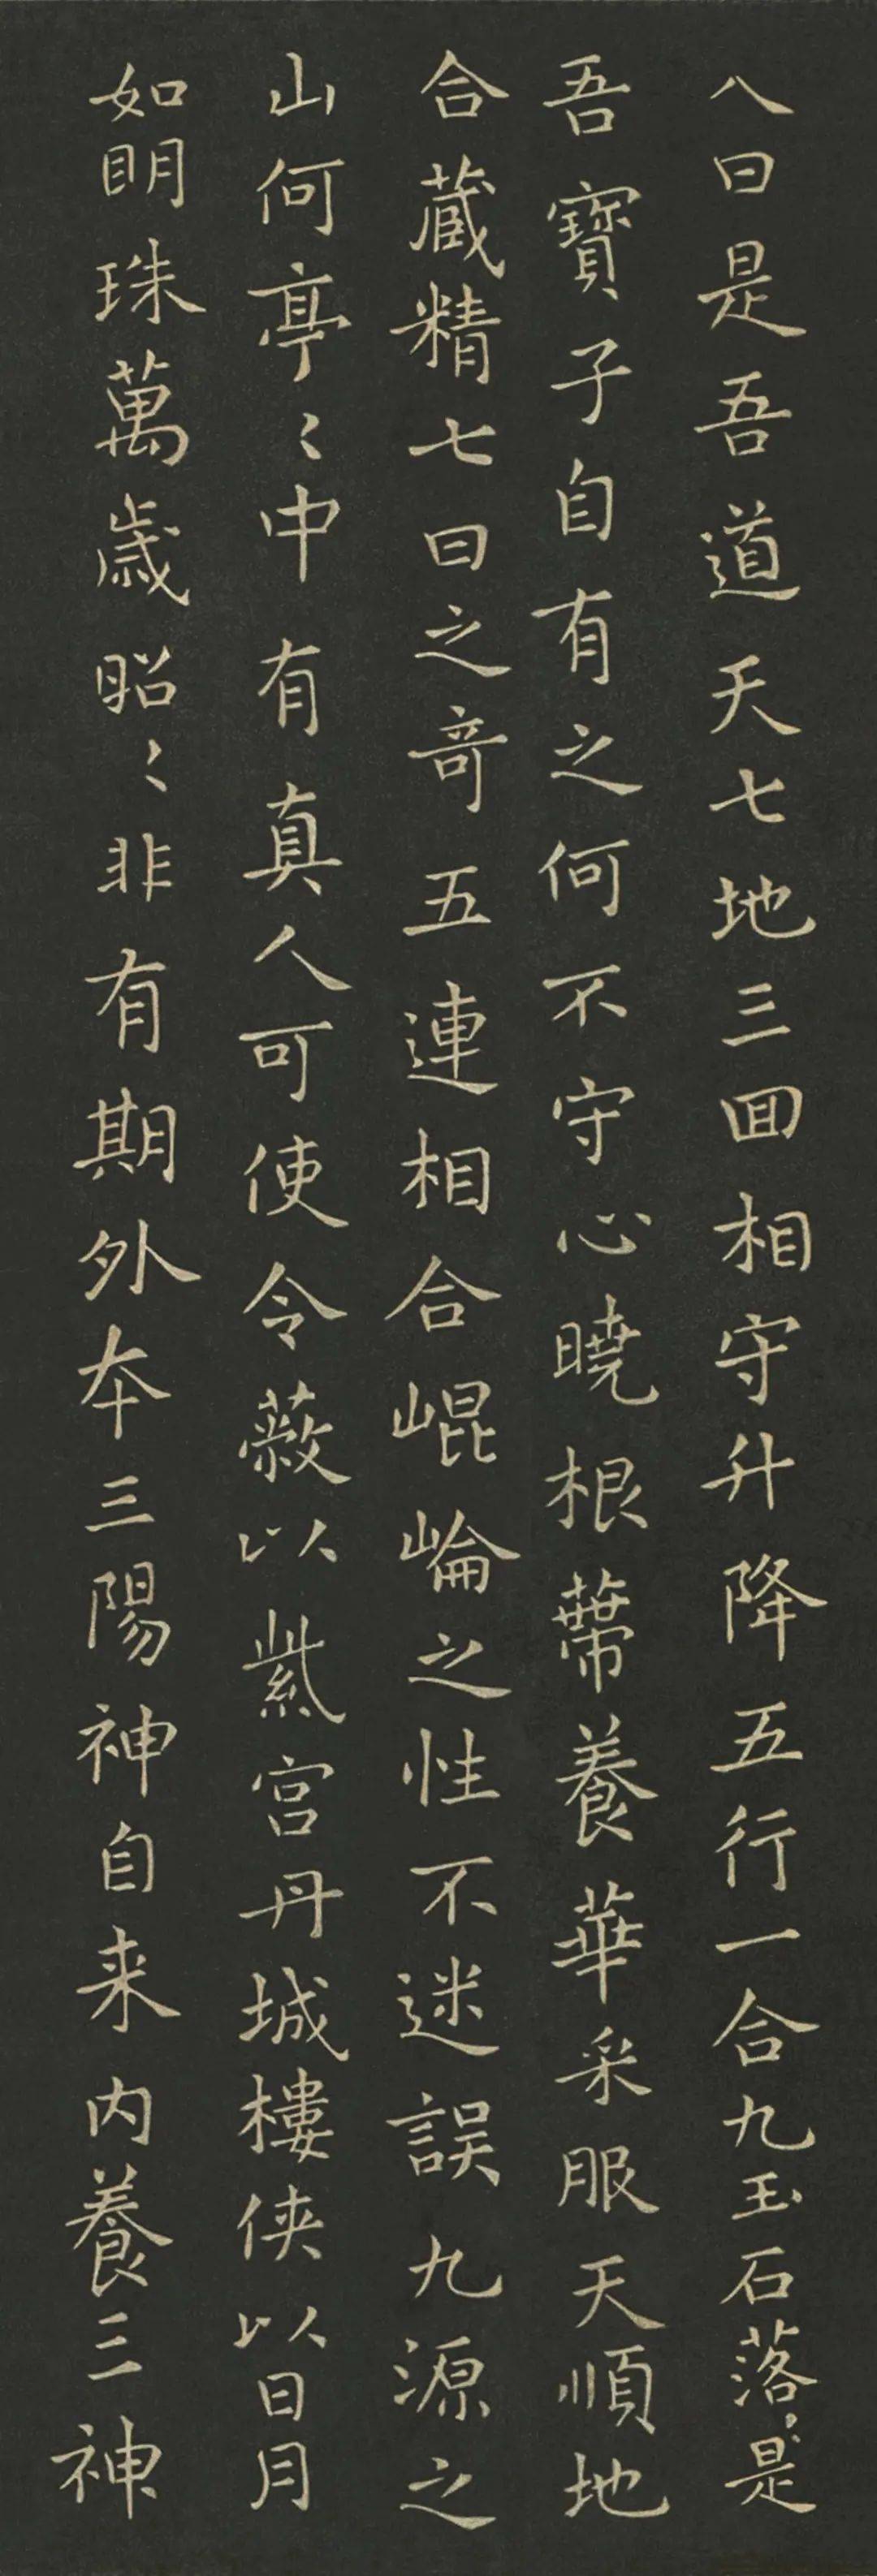 八曰是吾道天七地三回相守升降五行一合九玉石落〻是
吾寶子自有之何不守心曉根蔕養華采服天順地
合藏精七日之奇五連相合崐崘之性不迷誤九源之
山何亭〻中有真人可使令蔽以紫宫丹城樓侠以日月
如明珠萬歲昭〻非有期外本三陽神自来内養三神